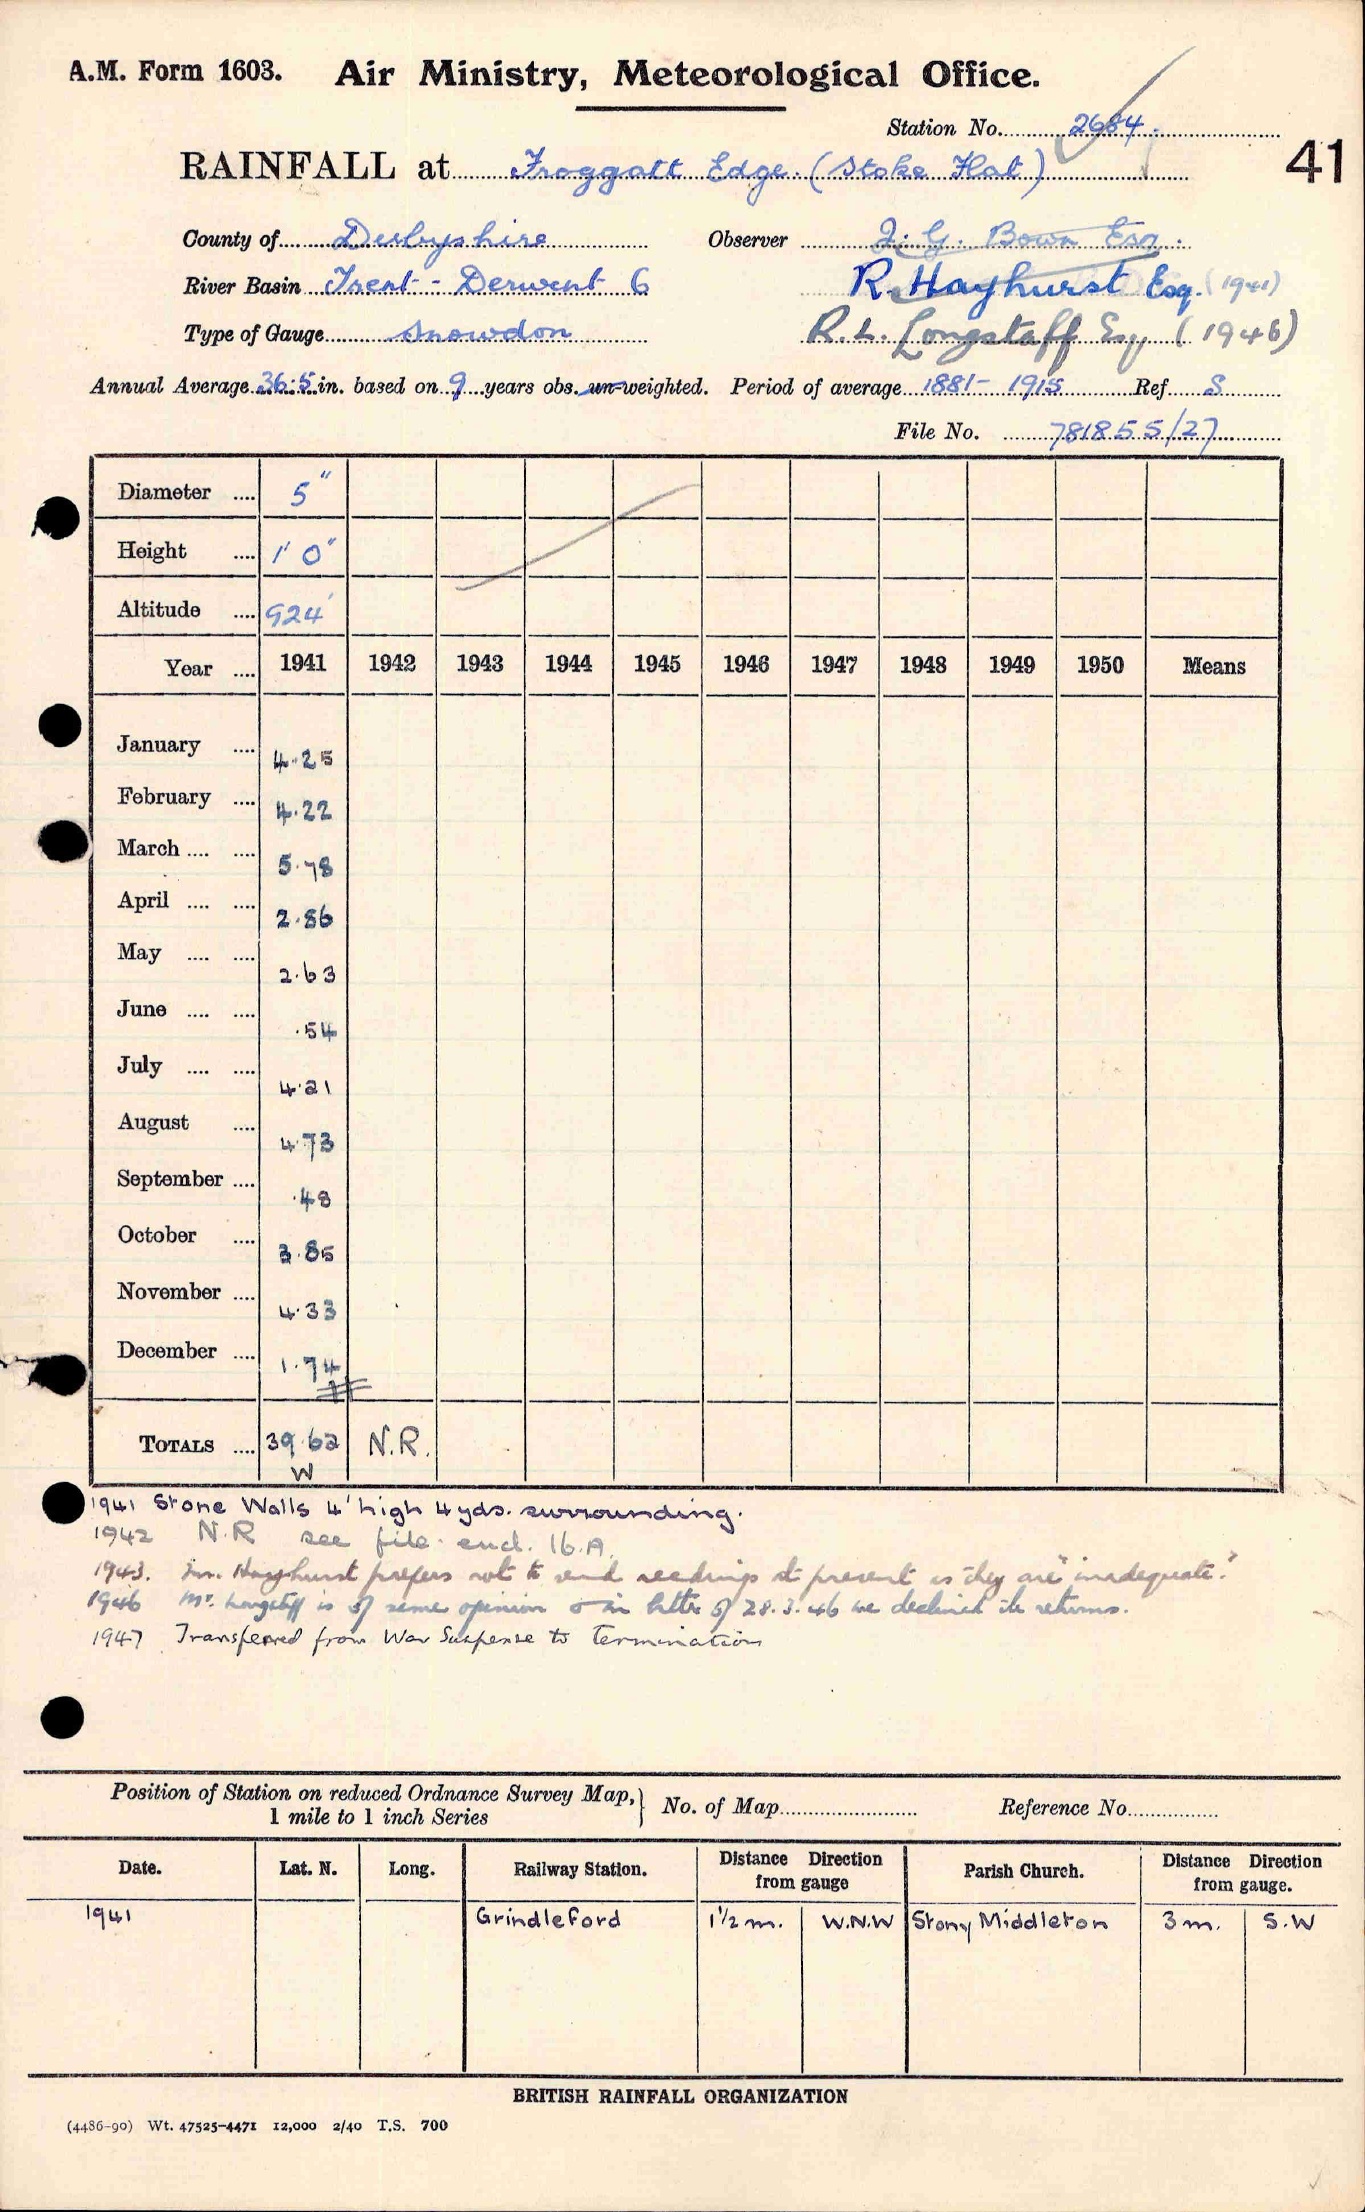 A.M. Form 1603. Air Ministry, Meteorological Office.
Station No. 2684.
41
RAINFALL at Froggatt Edge. (Stoke Flat)
County of Derbyshire Observer J. G. Bown Esq.
River Basin Trent - Derwent 6 R. Hayhurst Esq. (1941)
Type of Gauge Snowdon R. L. Longstaff Esq (1946)
Annual Average 36.5 in. based on 9 years obs. un-weighted. Period of average 1881-1915 Ref. S
File No. 781855/27
Diameter .... 5"
Height .... 1' 0"
Altitude .... 924'
Year .... 1941 1942 1943 1944 1945 1946 1947 1948 1949 1950 Means
January .... 4.25
February .... 4.22
March .... .... 5.78
April .... .... 2.86
May .... .... 2.63
June .... .... .54
July .... .... 4.21
August .... 4.73
September .... .48
October .... 3.85
November .... 4.33
December .... 1.74
TOTALS .... 39.62 N.R.
W
1941 Stone Walls 4' high 4 yds. surrounding.
1942 N.R see file encl. 16.A.
1943. Mr. Hayhurst prefers not to send readings at present as they are "inadequate."
1946 Mr. Longstaff is of same opinion & in letter of 28.3.46 we declined its returns.
1947 Transferred from War Suspense to Termination
Position of Station on reduced Ordnance Survey Map, } No. of Map Reference No.
1 mile to 1 inch Series
Date. Lat. N. Long. Railway Station. Distance Direction from gauge Parish Church. Distance Direction from gauge.
1941 Grindleford 1½ m. W.N.W Stony Middleton 3 m. S.W
BRITISH RAINFALL ORGANIZATION
(4486-90) Wt. 47525-4471 12,000 2/40 T.S. 700